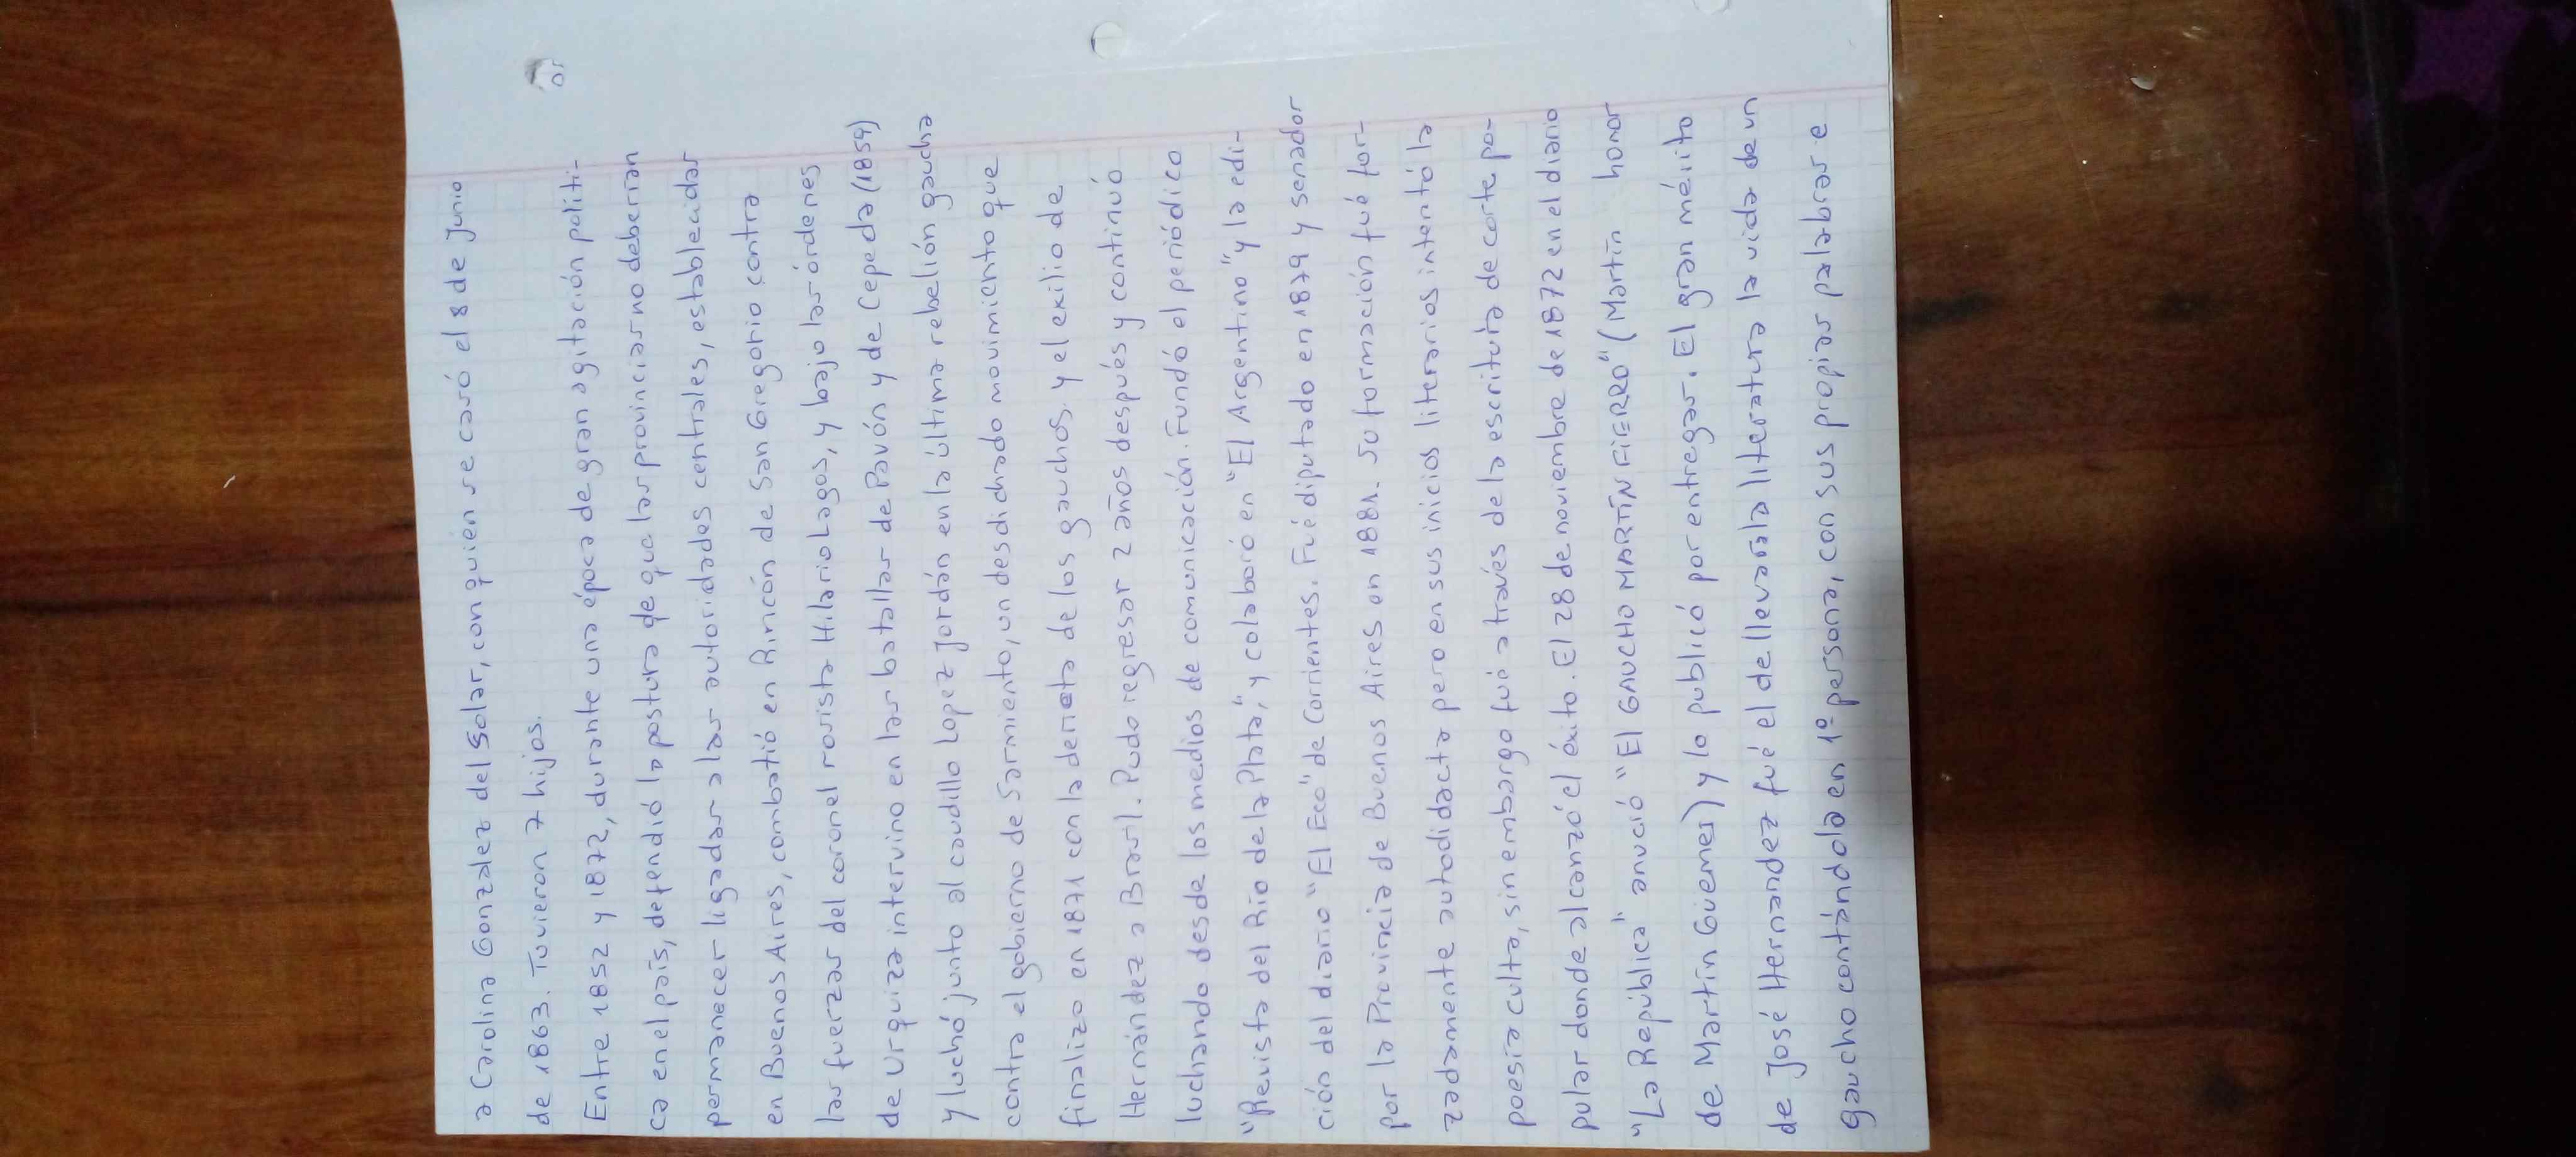 a Carolina Gonzalez del Solar, con quién se casó el 8 de Junio
de 1863. Tuvieron 7 hijos.
Entre 1852 y 1872, durante una época de gran agitación políti-
ca en el país, defendió la postura de que las provincias no deberían
permanecer ligadas a las autoridades centrales, establecidas
en Buenos Aires, combatió en Rincón de San Gregorio contra
las fuerzas del coronel rosista Hilario Lagos, y bajo las órdenes
de Urquiza intervino en las batallas de Pavón y de Cepeda (1859)
y luchó junto al caudillo Lopez Jordán en la última rebelión gaucha
contra el gobierno de Sarmiento, un desdichado movimiento que
finalizo en 1871 con la derrota de los gauchos y el exilio de
Hernández a Brasil. Pudo regresar 2 años después y continuó
luchando desde los medios de comunicación. Fundó el periódico
"Revista del Río de la Plata", y colaboró en "El Argentino" y la edi-
ción del diario "El Eco" de Corrientes. Fué diputado en 1879 y senador
por la Provincia de Buenos Aires en 1881. Su formación fué for-
zadamente autodidacta pero en sus inicios literarios intentó la
poesía culta, sin embargo fué a través de la escritura de corte po-
pular donde alcanzó el éxito. El 28 de noviembre de 1872 en el diario
"La República" anució "El GAUCHO MARTÍN FIERRO" (Martín honor
de Martín Güemes) y lo publicó por entregas. El gran mérito
de José Hernandez fué el de llevar a la literatura la vida de un
gaucho contándola en 1º persona, con sus propias palabras e